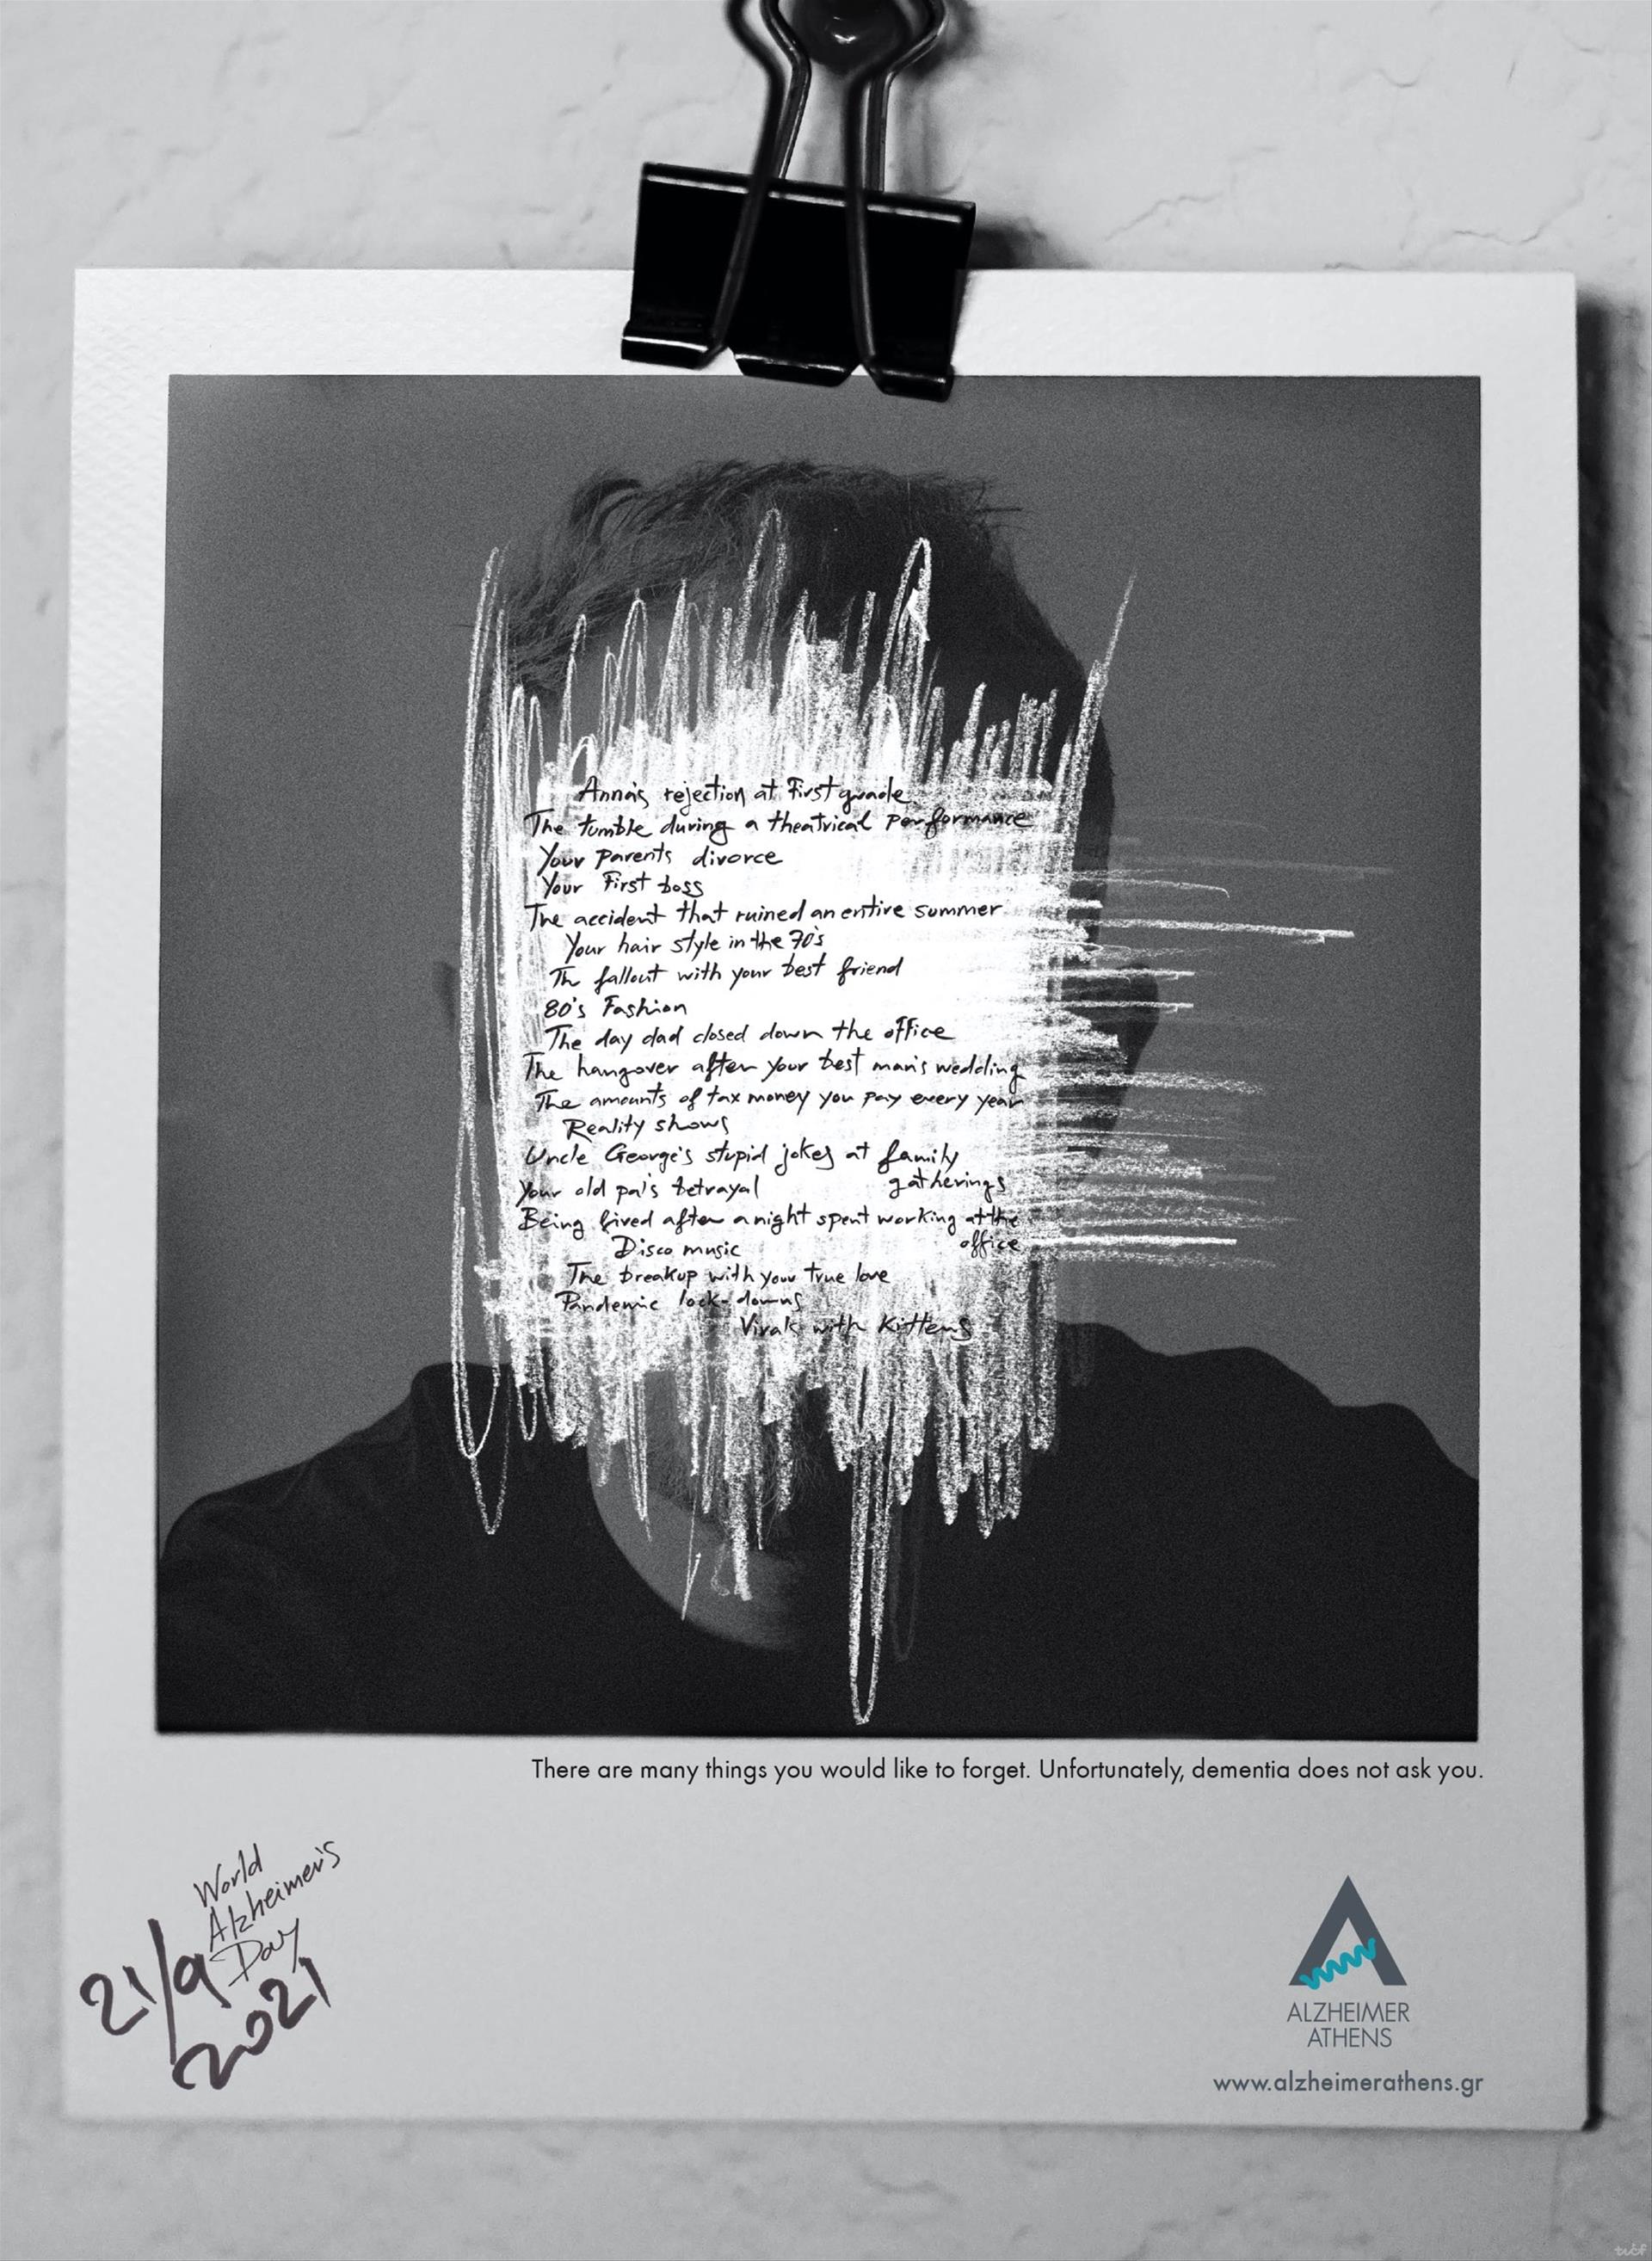 Anna's rejection at First grade
The tumble during a theatrical performance
Your parents divorce
Your First boss
The accident that ruined an entire summer
Your hair style in the 70's
Th fallout with your best friend
80's Fashion
The day dad closed down the office
The hangover after your best man's wedding
The amounts of tax money you pay every year
Reality shows
Uncle George's stupid jokes at family
gatherings
Your old pa's betrayal
Being fired after a night spent working at the
office
Disco music
The breakup with your true love
Pandemic lock-downs
Virals with Kittens
There are many things you would like to forget. Unfortunately, dementia does not ask you.
World
Alzheimer's
Day
21/9
2021
ALZHEIMER
ATHENS
www.alzheimerathens.gr